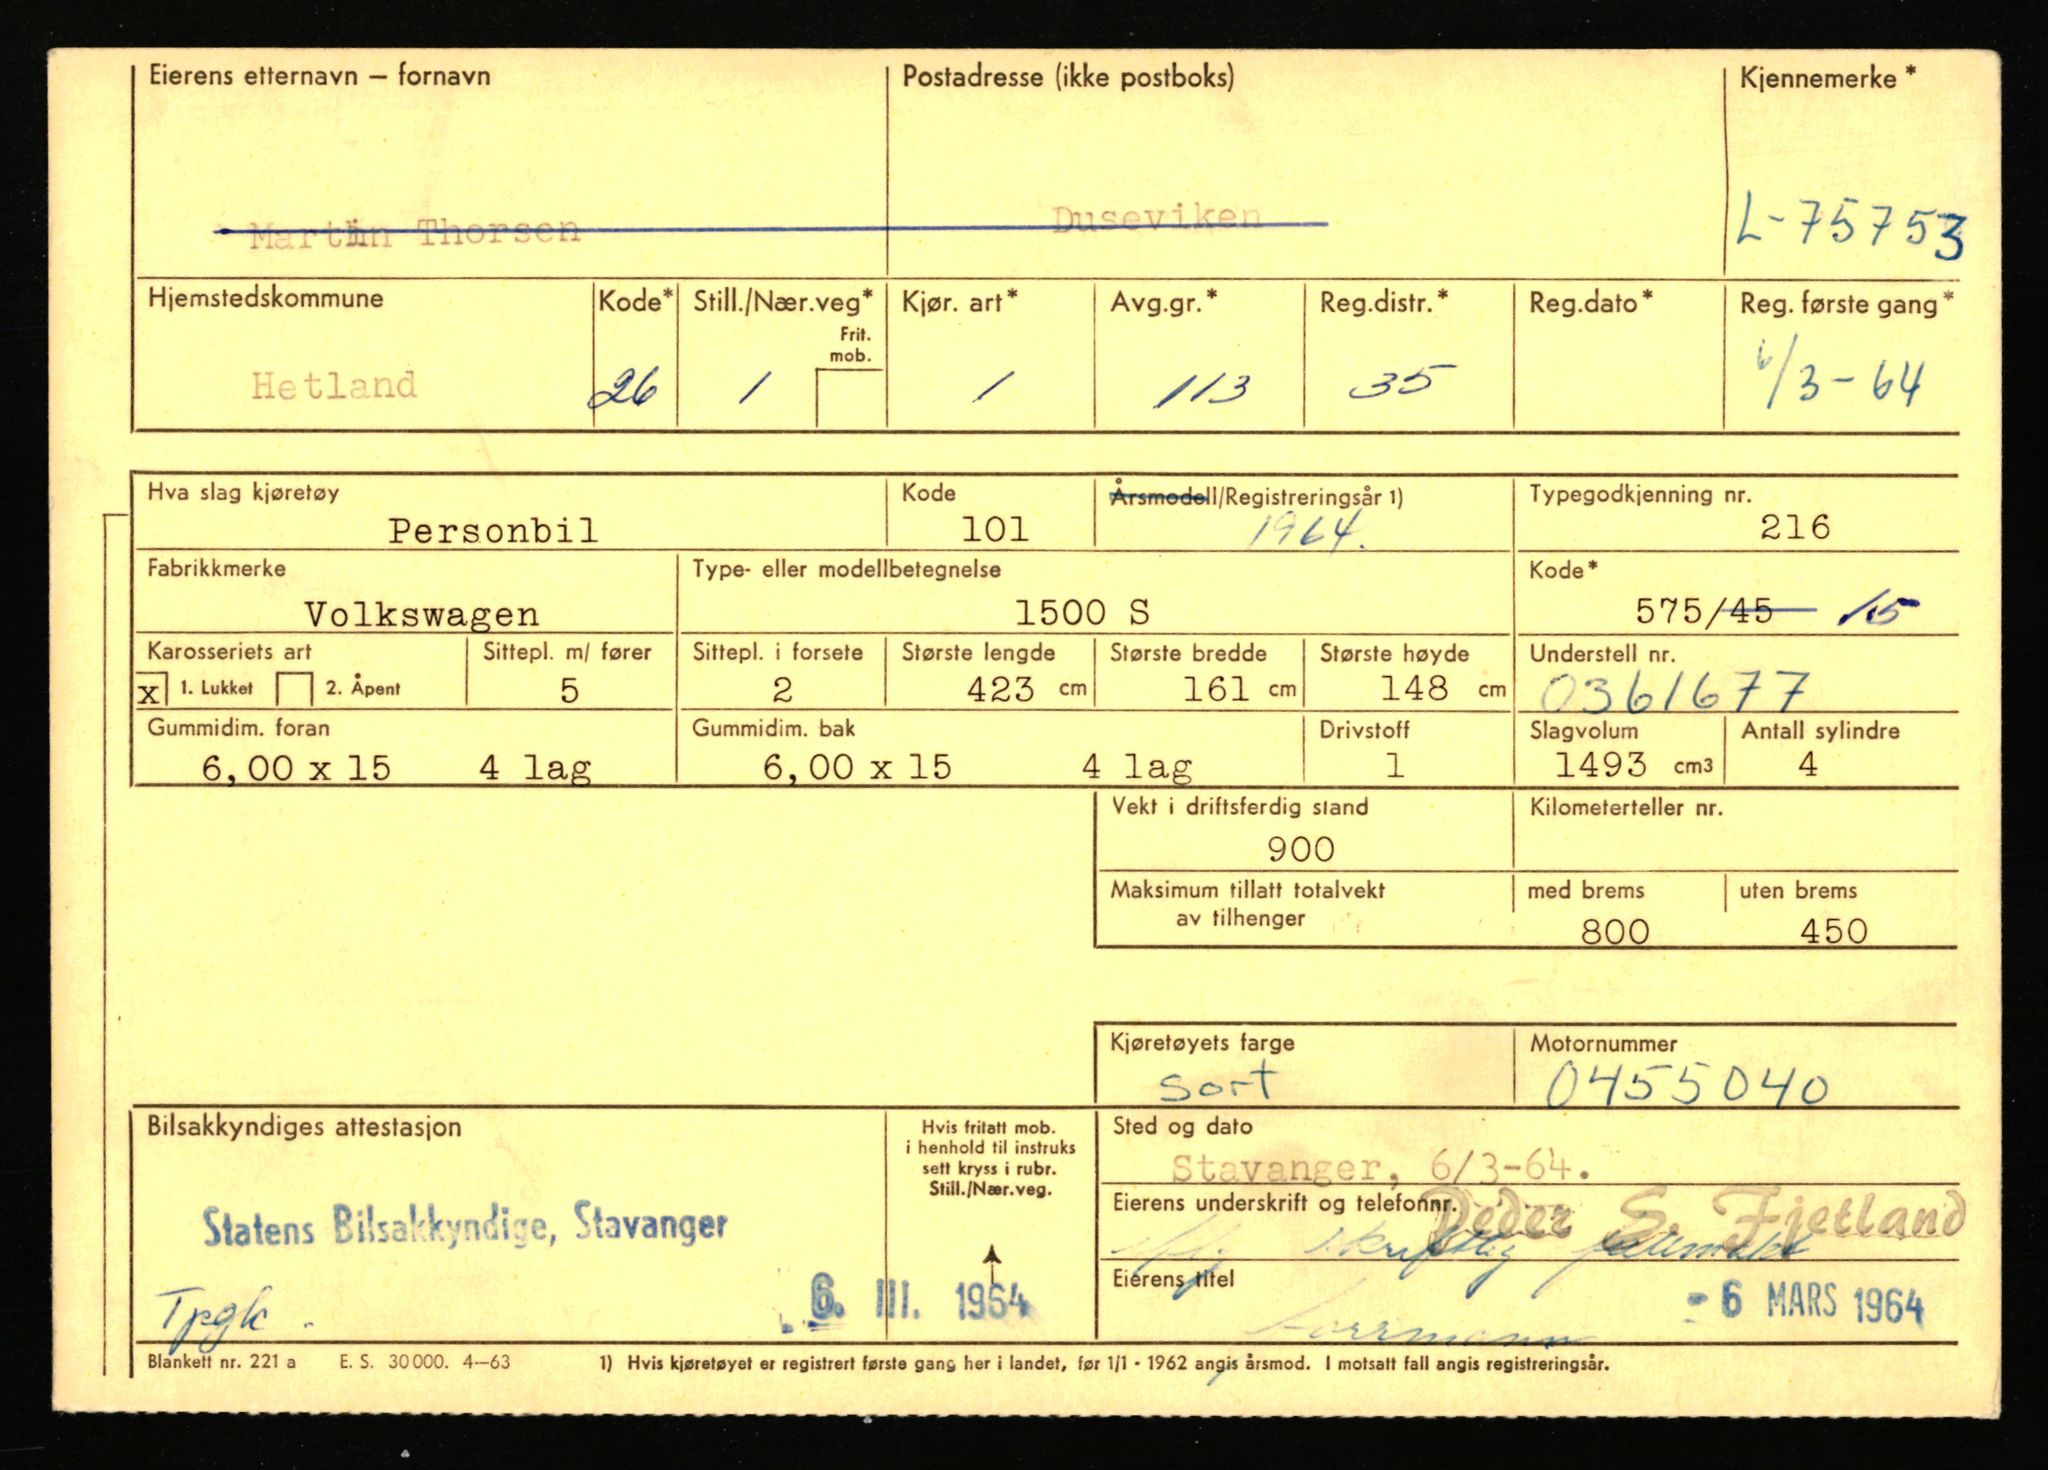 Eierens etternavn – fornavn Postadresse (ikke postboks) Kjennemerke*
Martin Thorsen Duseviken L-75753
Hjemstedskommune Kode* Still./Nær.veg* Kjør. art* Avg.gr.* Reg.distr.* Reg.dato* Reg. første gang*
Frit.
mob.
Hetland 26 1 1 113 35 6/3-64
Hva slag kjøretøy Kode Årsmodell/Registreringsår 1) Typegodkjenning nr.
Personbil 101 1964. 216
Fabrikkmerke Type- eller modellbetegnelse Kode*
Volkswagen 1500 S 575/45 15
Karosseriets art Sittepl. m/ fører Sittepl. i forsete Største lengde Største bredde Største høyde Understell nr.
x 1. Lukket 2. Åpent 5 2 423 cm 161 cm 148 cm 0361677
Gummidim. foran Gummidim. bak Drivstoff Slagvolum Antall sylindre
6,00 x 15 4 lag 6,00 x 15 4 lag 1 1493 cm3 4
Vekt i driftsferdig stand Kilometerteller nr.
900
Maksimum tillatt totalvekt med brems uten brems
av tilhenger
800 450
Kjøretøyets farge Motornummer
Sort 0455040
Bilsakkyndiges attestasjon Hvis fritatt mob. Sted og dato
i henhold til instruks
sett kryss i rubr.
Still./Nær.veg.
Stavanger, 6/3-64.
Eierens underskrift og telefonnr. Peder S. Fjetland
Statens Bilsakkyndige, Stavanger
skriftlig fullmakt
Eierens titel
Tpgk. 6. III. 1964 - 6 MARS 1964
Blankett nr. 221 a E. S. 30000. 4–63 1) Hvis kjøretøyet er registrert første gang her i landet, før 1/1 - 1962 angis årsmod. I motsatt fall angis registreringsår.